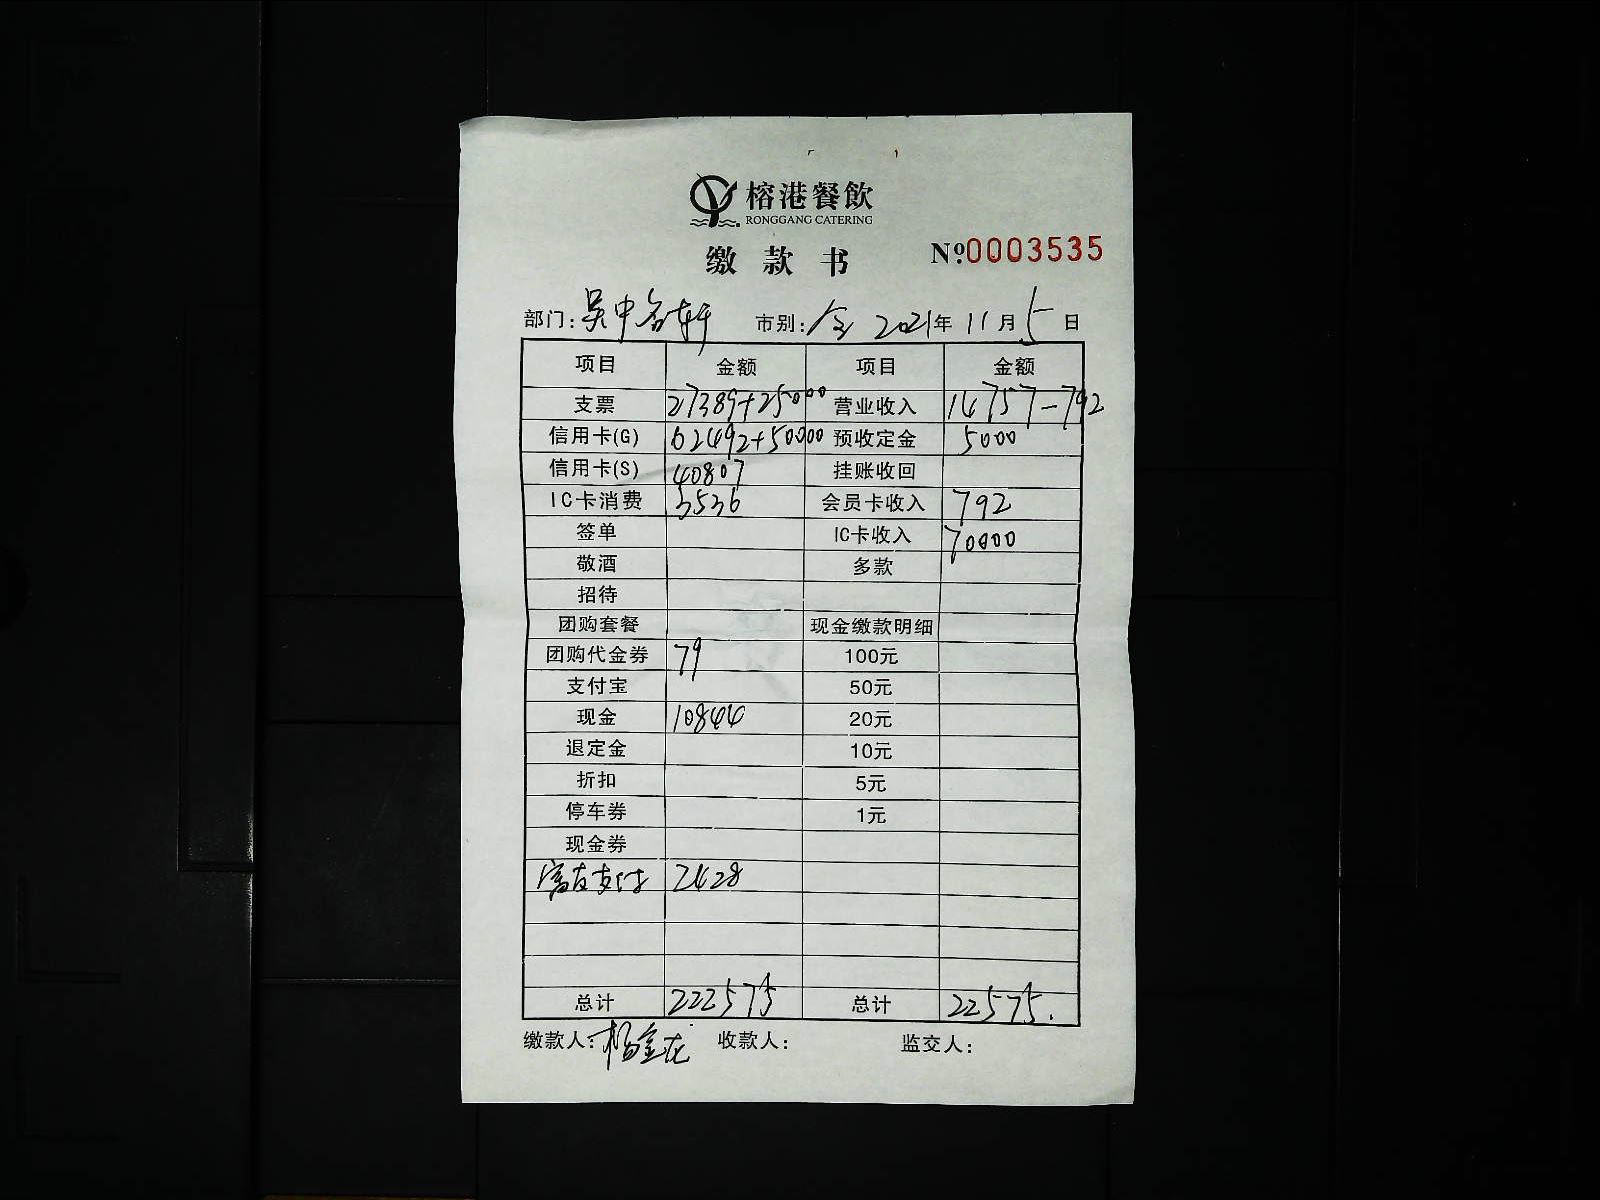 榕港餐飲
RONGGANG CATERING
缴款书 №0003535
部门: 吴中名轩 市别: 全 2021年 11月 5日
项目 金额 项目 金额
支票 27389+25000 营业收入 14757-792
信用卡(G) 62492+50000 预收定金 5000
信用卡(S) 40807 挂账收回
IC卡消费 3536 会员卡收入 792
签单 IC卡收入 70000
敬酒 多款
招待
团购套餐 现金缴款明细
团购代金券 79 100元
支付宝 50元
现金 10844 20元
退定金 10元
折扣 5元
停车券 1元
现金券
富友支付 2428
总计 222575 总计 22575.
缴款人: 杨金花 收款人: 监交人: